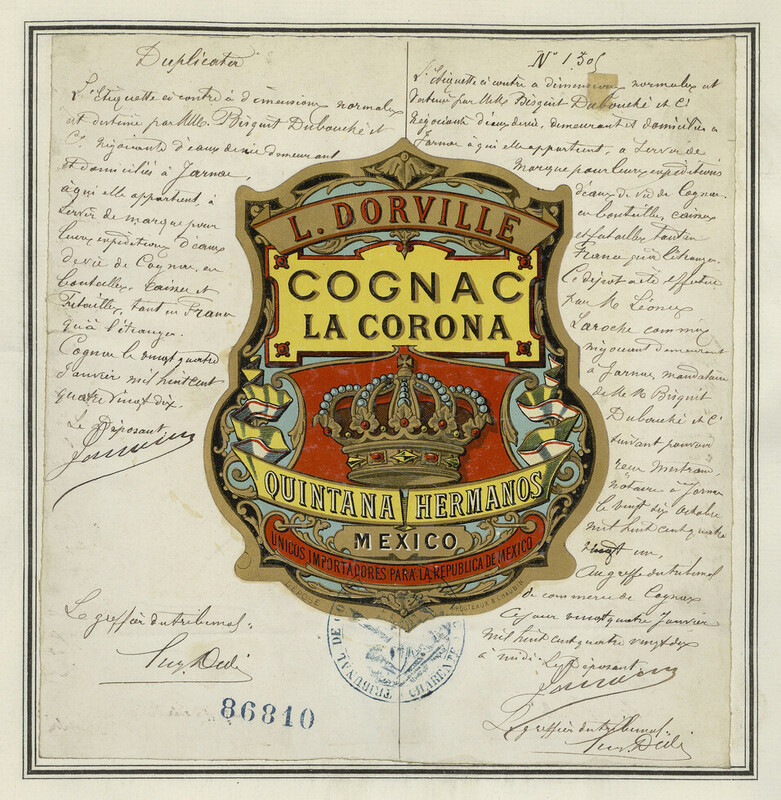 Duplicata
L'Etiquette ci contre à dimensions normales
est destinée par MM. Bisquit Dubouché et
Cie négociants d'eaux de vie demeurant
et domiciliés à Jarnac,
à qui elle appartient, à
servir de marque pour
leurs expéditions d'eaux
de vie de Cognac, en
bouteilles, caisses et
futailles, tant en France
qu'à l'étranger.
Cognac le vingt quatre
Janvier mil huit cent
quatre vingt dix.
Le Déposant
Le greffier du tribunal.
86810
L. DORVILLE
COGNAC
LA CORONA
QUINTANA HERMANOS
MEXICO
UNICOS IMPORTADORES PARA LA REPUBLICA DE MEXICO
DEPOSE
TRIBUNAL DE CO
CHARENTE
L'Etiquette ci contre à dimensions normales est
destinée par MM. Bisquit Dubouché et Cie
négociants d'eaux de vie, demeurant et domiciliés à
Jarnac à qui elle appartient, à servir de
marque pour leurs expéditions
d'eaux de vie de Cognac
en bouteilles, caisses
et futailles tant en
France qu'à l'étranger.
Ce dépôt a été effectué
par M. Léonce
Laroche commis
négociant demeurant
à Jarnac, mandataire
de MM Bisquit
Dubouché et Cie
suivant pouvoir
reçu
notaire à Jarnac
le vingt dix octobre
mil huit cent quatre
vingt un,
Au greffe du tribunal
de commerce de Cognac
Ce jour vingt quatre Janvier
mil huit cent quatre vingt dix
à midi. Le Déposant
Le greffier du tribunal